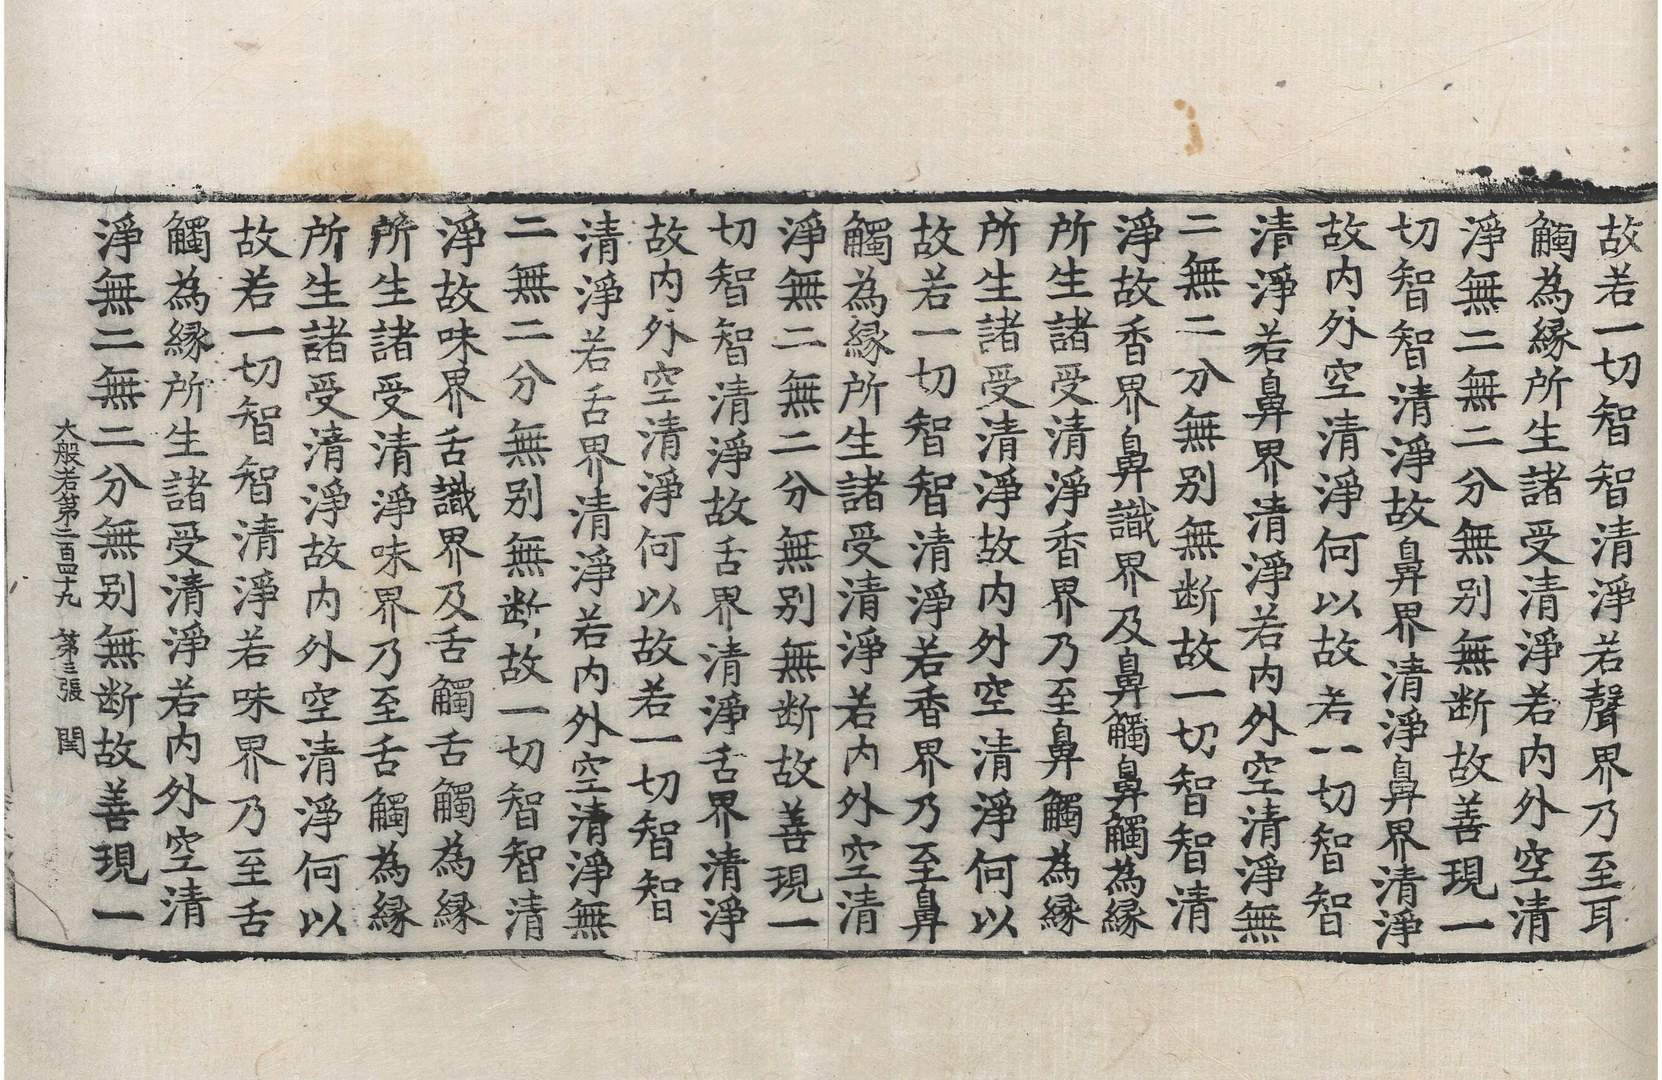 故若一切智智清淨若聲界乃至耳
觸為緣所生諸受清淨若內外空清
淨無二無二分無別無断故善現一
切智智清淨故鼻界清淨鼻界清淨
故內外空清淨何以故若一切智智
清淨若鼻界清淨若內外空清淨無
二無二分無别無断故一切智智清
淨故香界鼻識界及鼻觸鼻觸為緣
所生諸受清淨香界乃至鼻觸為緣
所生諸受清淨故內外空清淨何以
故若一切智智清淨若香界乃至鼻
觸為緣所生諸受清淨若內外空清
淨無二無二分無别無断故善現一
切智智清淨故舌界清淨舌界清淨
故內外空清淨何以故若一切智智
清淨若舌界清淨若內外空清淨無
二無二分無别無断故一切智智清
淨故味界舌識界及舌觸舌觸為緣
所生諸受清淨味界乃至舌觸為緣
所生諸受清淨故內外空清淨何以
故若一切智智清淨若味界乃至舌
觸為緣所生諸受清淨若內外空清
淨無二無二分無别無断故善現一
大般若第二百四十九 第三張 閏